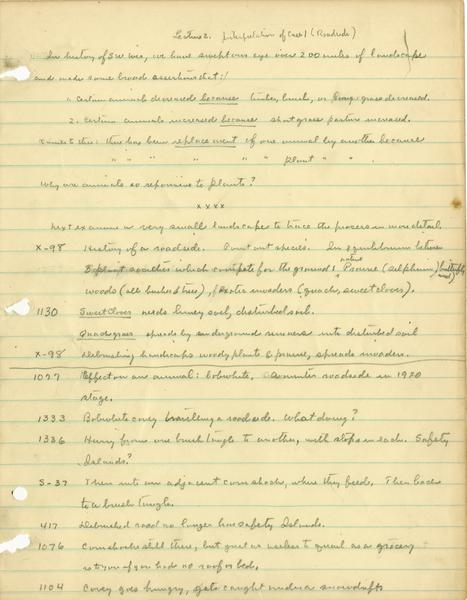 Lecture 2. Interpretation of Case 1 (Roadside)
In history of SW Wis, we have swept our eye over 200 miles of landscape
and made some broad assertions that:
1. Certain animals decreased because timber, brush, or long grass decreased.
2. Certain animals increased because short grass pasture increased.
this: there has been replacement of one animal by another because
" " " " " plant " " .
Why are animals so responsive to plants?
x x x x
Next examine a very small landscape to trace the process in more detail.
X-98 History of a roadside. Point out species. In equilibrium between
3 plant societies which compete for the ground: native Prairie (silphium, butterfly weed)
woods (all bushes & trees), exotic invaders (quack, sweet clover).
1130 Sweet Clover needs limey soil, disturbed soil.
Quack grass spreads by underground runners into disturbed soil
X-98 Debrushing handicaps woody plants & prairie, spreads invaders.
1077 Effect on an animal: bobwhite, a winter roadside in 1920
stage.
1333 Bobwhite covey traveling a roadside. What doing?
1336 Hurry from one brush tangle to another, with stops in each. Safety
Islands?
S-37 Then into an adjacent corn shock, where they feed. Then back
to a brush tangle.
417 Debrushed road no longer has safety Islands.
1076 Cornshocks still there, but just as useless to quail as a grocery
is to you if you had no roof or bed.
1104 Covey goes hungry, gets caught under a snowdrift